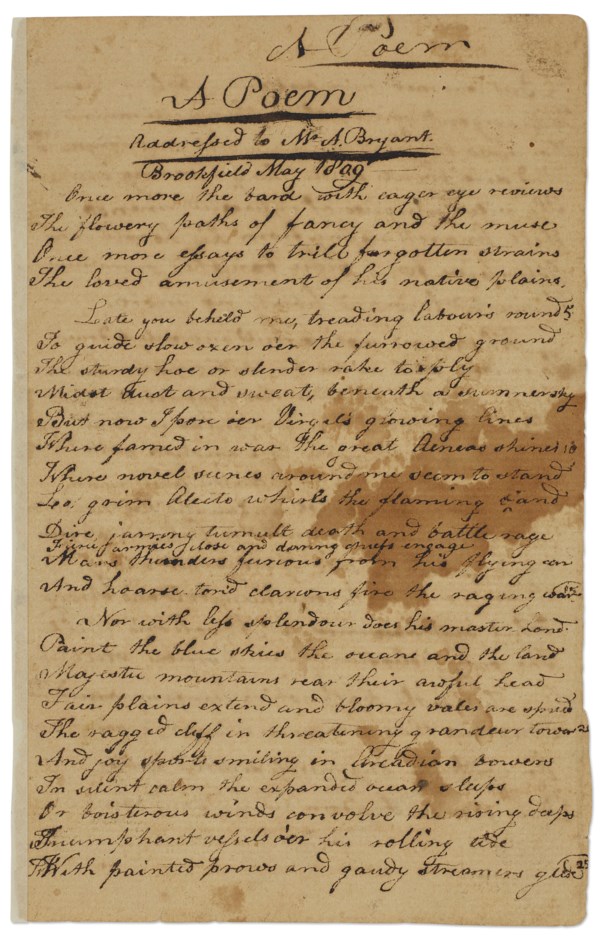 A Poem
A Poem
Addressed to Mr A. Bryant.
Brookfield May 1809
Once more the bard with eager eye reviews
The flowery paths of fancy and the muse
Once more essays to trill forgotten strains
The loved amusement of his native plains.
Late you beheld me, treading labour's round 5
To guide slow oxen o'er the furrowed ground
The sturdy hoe or slender rake to ply
Midst dust and sweat, beneath a summer sky
But now I pore o'er Virgil's glowing lines
Where famed in war the great Aeneas shines 10
Where novel scenes around me seem to stand
Lo, grim Alecto whirls the flaming
Dire jarring tumult death and battle rage
Fierce armies close and daring chiefs engage
Mars thunders furious from his flying car
And hoarse-ton'd clarions fire the raging war
Nor with less splendour does his master hand
Paint the blue skies the ocean and the land
Majestic mountains rear their awful head
Fair plains extend and bloomy vales are spread
The rugged cliff in threatening grandeur towers
And joy sports smiling in Arcadian bowers
In silent calm the expanded ocean sleeps
Or boisterous winds convolve the rising deeps
Triumphant vessels o'er his rolling tide
With painted prows and gaudy streamers glide 25